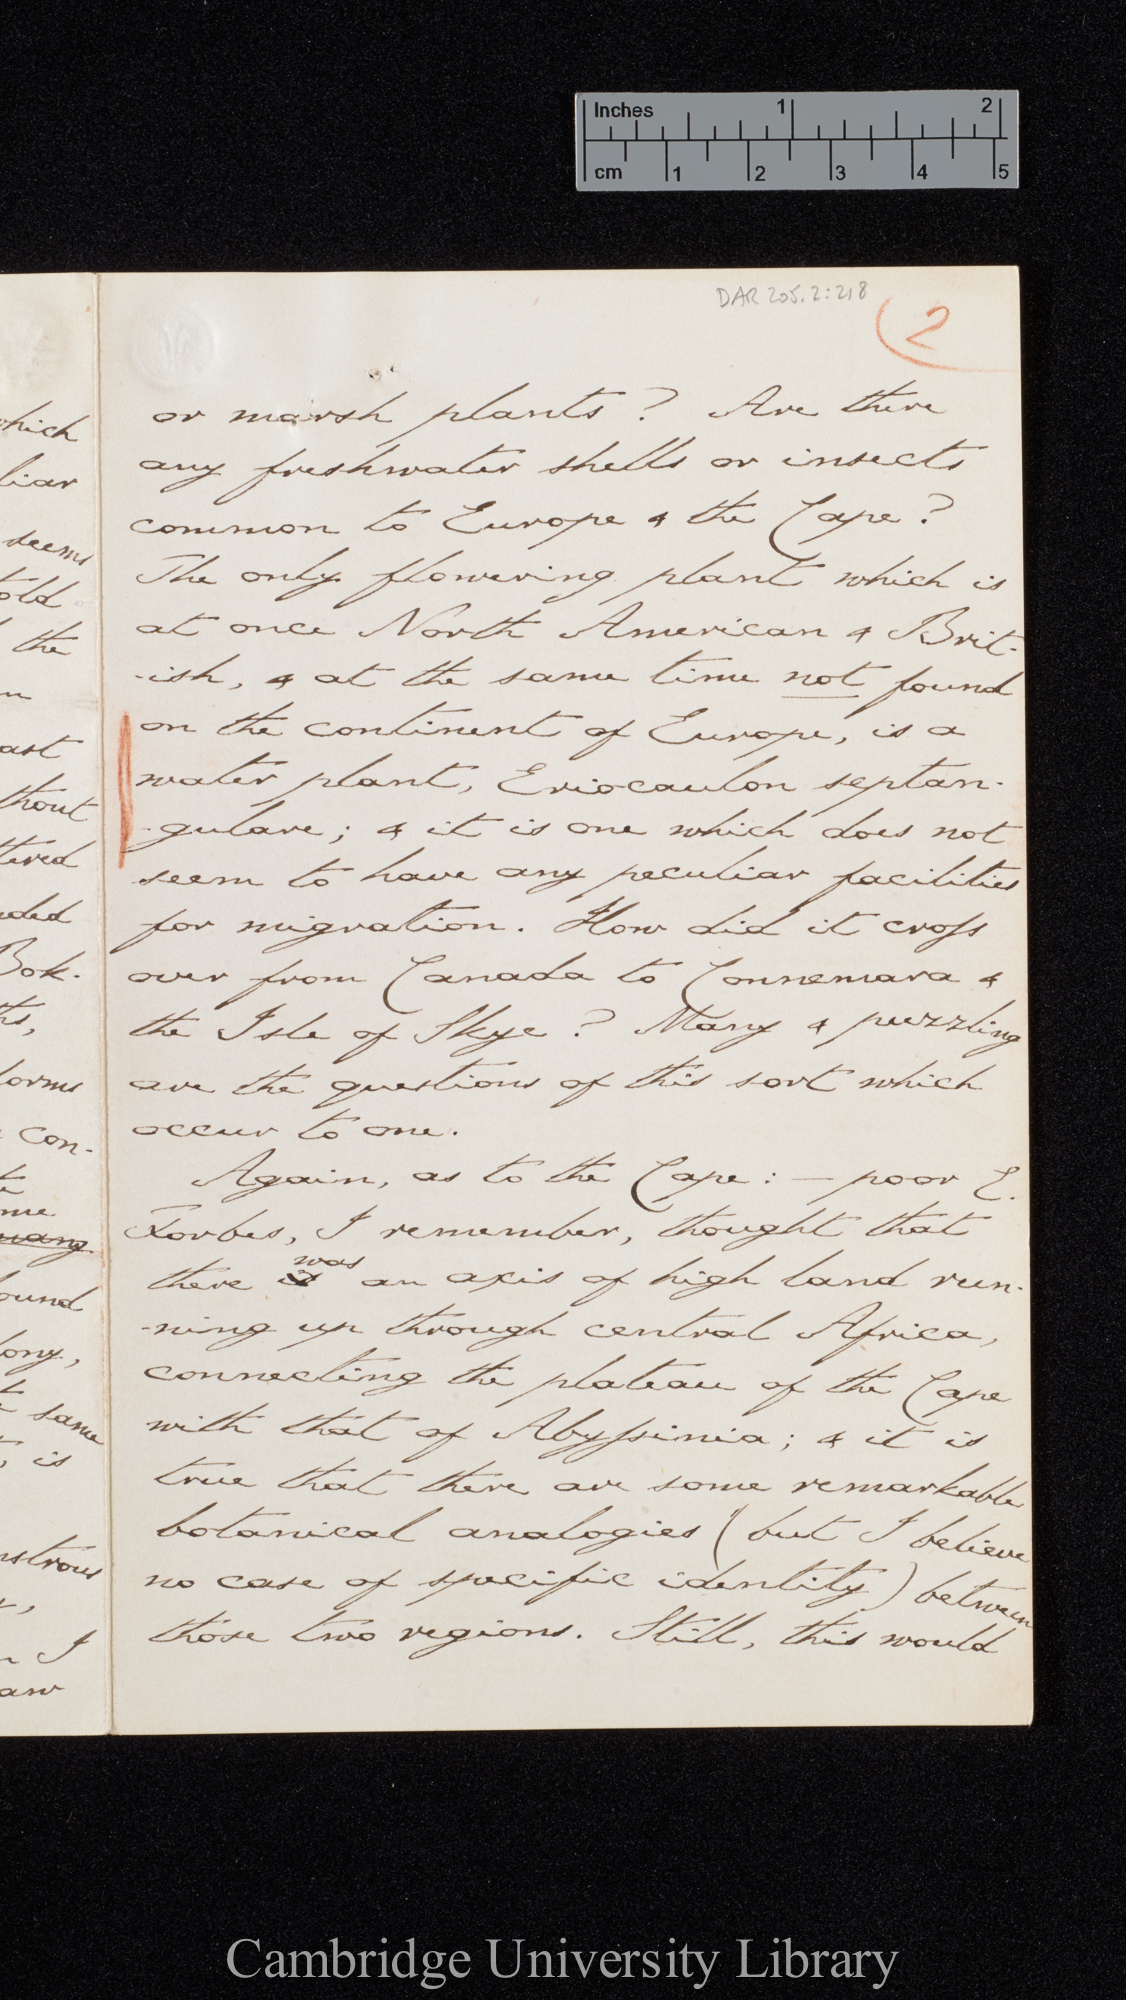 Inches 1 2
cm 1 2 3 4 5
DAR 205.2:218
2
or marsh plants? Are there
any freshwater shells or insects
common to Europe & the Cape?
The only flowering plant which is
at once North American & Brit-
-ish, & at the same time not found
on the continent of Europe, is a
water plant, Eriocaulon septan-
-gulare; & it is one which does not
seem to have any peculiar facilities
for migration. How did it cross
over from Canada to Connemara &
the Isle of Skye? Many & puzzling
are the questions of this sort which
occur to one.
Again, as to the Cape:— poor E.
Forbes, I remember, thought that
was
there is an axis of high land run-
-ning up through central Africa,
connecting the plateau of the Cape
with that of Abyssinia; & it is
true that there are some remarkable
botanical analogies (but I believe
no case of specific identity) between
those two regions. Still, this would
hich
liar
seems
old
the
ast
thout
ttered
uded
Bok-
ths,
forms
con-
me
ound
lony,
same
is
nstrous
I
aw
Cambridge University Library